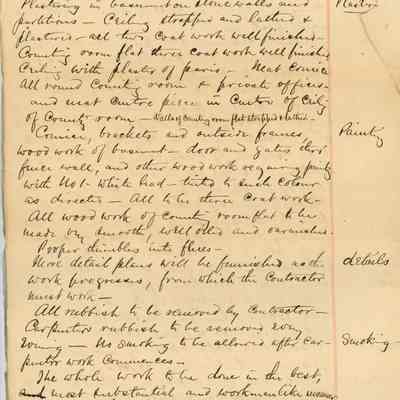 Plastering in basement on stone walls and
partitions – Ceiling strapped and lathed &
plastered – all two coat work well finished –
Counting room flat three coat work well finished
Ceiling with plaster of paris – Neat Cornice
All round County room & private offices –
and neat Centre piece in Centre of Ceilg
of County room – Walls of County room flat strapped & lathed –
Cornice, brackets and outside frames,
wood work of basement – door and gates thro'
fence wall, and other wood work requiring painting
with No 1 – White lead – tinted to such colour
as directed – All to be three coat work –
All wood work of County room flat to be
made very smooth, well oiled and varnished –
Proper thimbles into flues –
More detail plans will be furnished as the
work progresses, from which the Contractor
must work –
All rubbish to be removed by Contractor –
Carpenter rubbish to be removed every
Evening – No Smoking to be allowed after car-
penter work commences –
The whole work to be done in the best,
most substantial and workmanlike manner
Plastering
Painting
details
Smoking